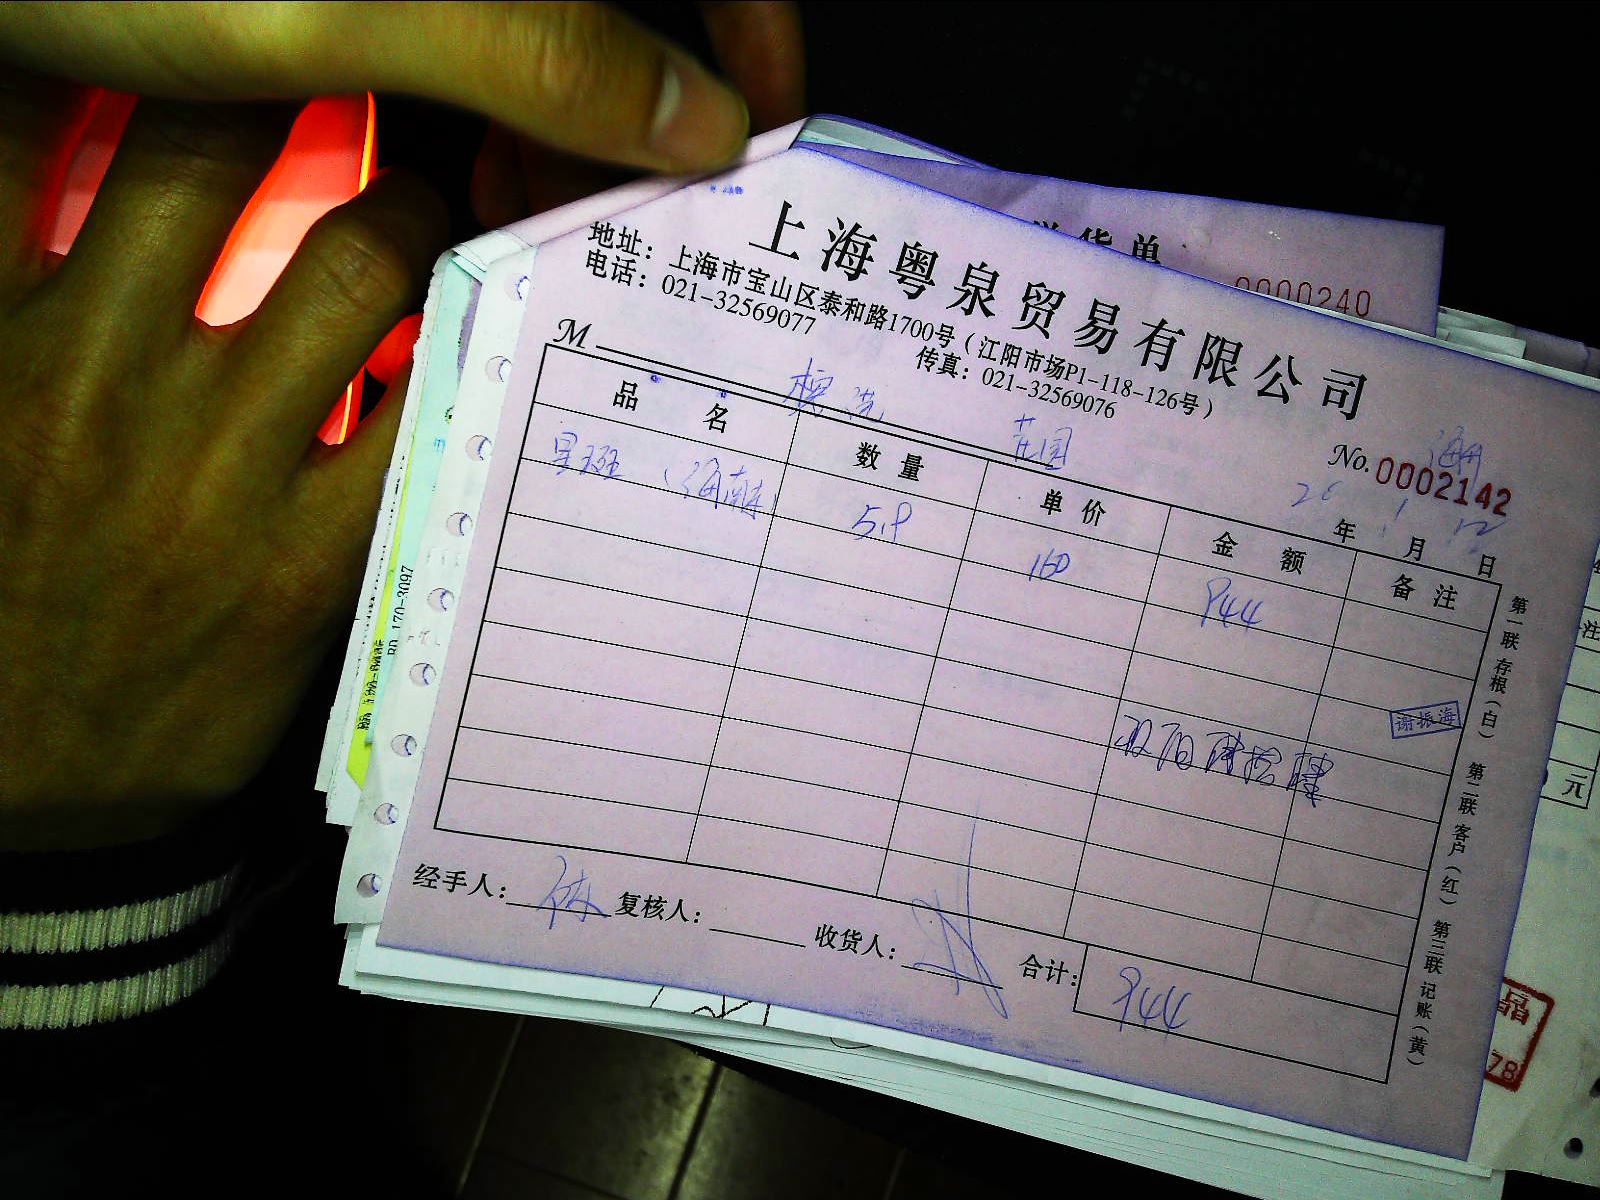 送货单
0000240
上海粤泉贸易有限公司
地址：上海市宝山区泰和路1700号（江阳市场P1-118-126号）
电话：021-32569077 传真：021-32569076
M
No. 0002142
年 月 日
品 名 数 量 单 价 金 额 备 注
星斑 5.9 160 944
谢振海
第一联 存根（白） 第二联 客户（红） 第三联 记账（黄）
经手人： 复核人： 收货人： 合计： 944
元
78